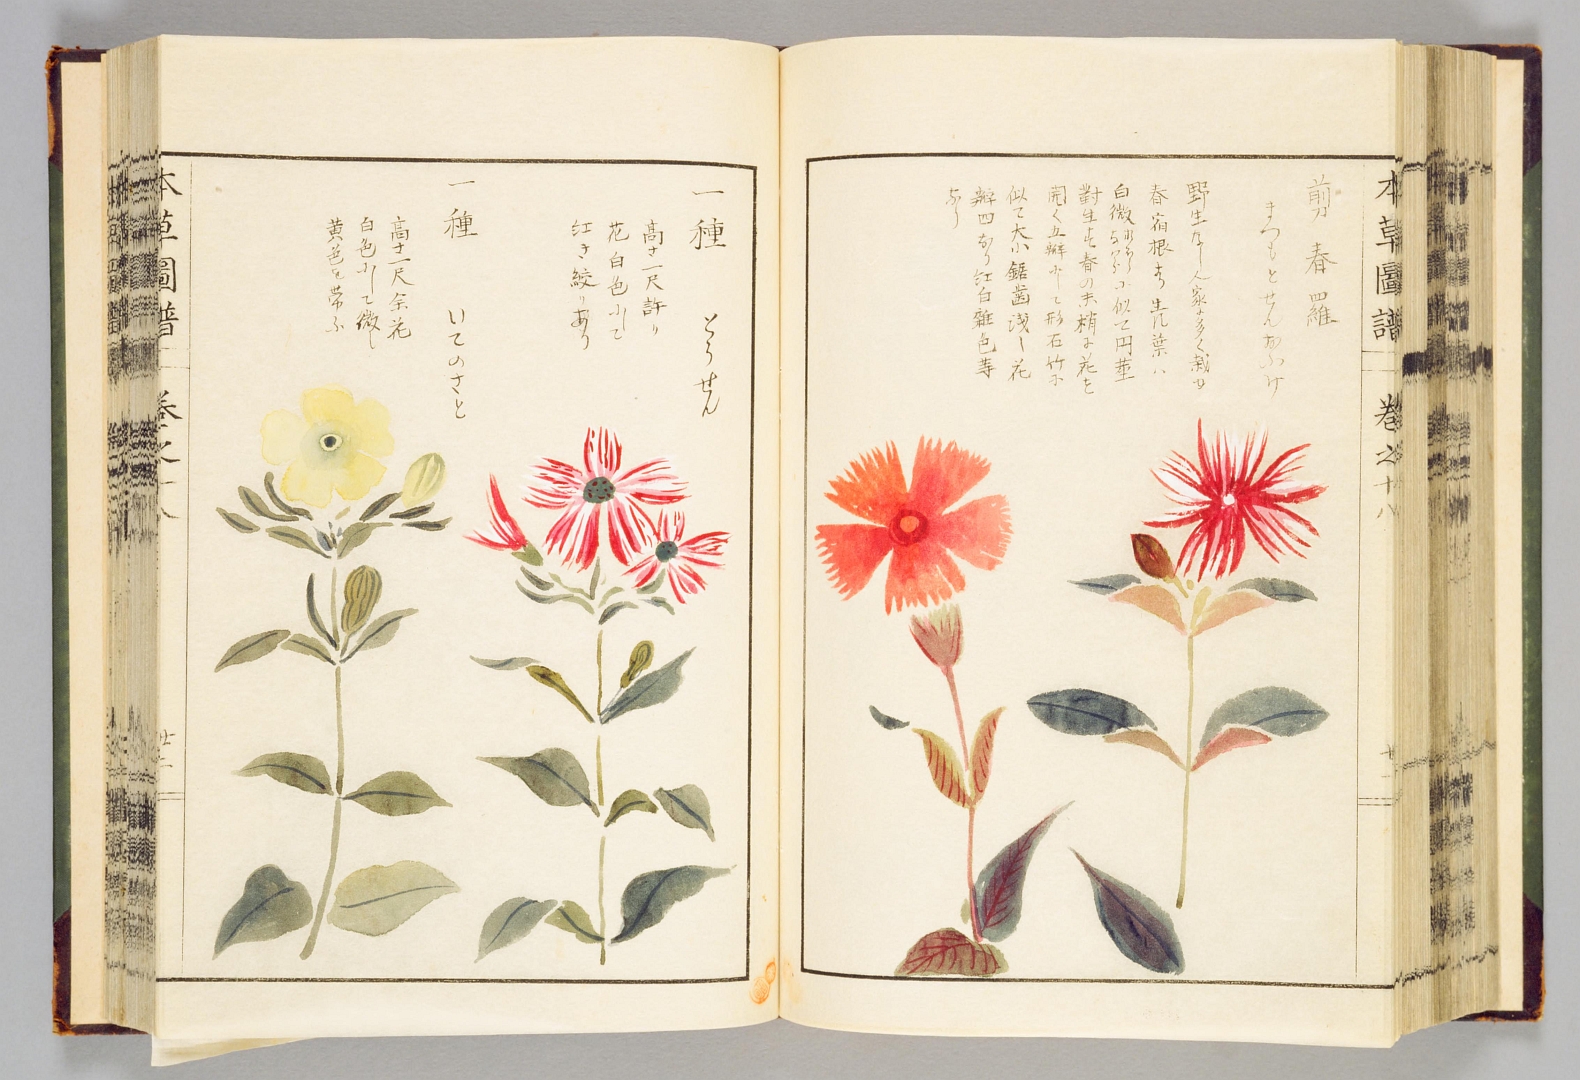 本草圖譜 巻之十八
剪春羅
まつもとせん
野生なし人家に多く栽ゆ
春宿根より生ル葉ハ
白微に似て円莖
對生す春の末梢に花を
開く五瓣にして形石竹に
似て大小鋸齒浅し花
瓣四あり紅白雜色等
あり
一種 とうせん
高サ一尺許り
花白色にして
紅き絞りあり
一種 いてのさと
高サ一尺余花
白色にして微し
黄色を帯ふ
本草圖譜
廿二